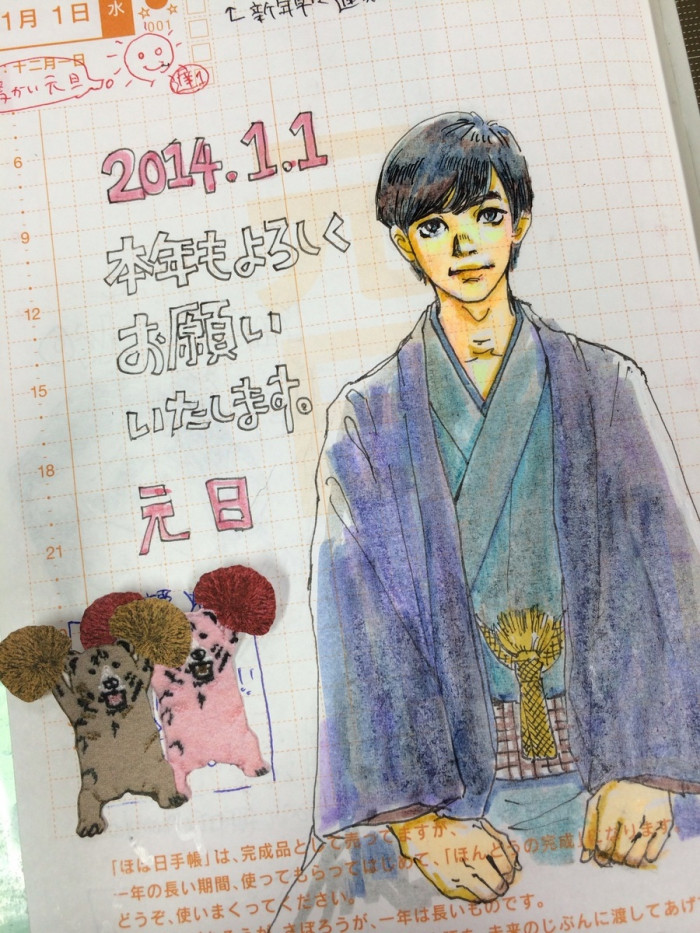 1月 1日 水
001
↑新年早々
十二月一日
暖かい元旦
6
2014.1.1
9
本年もよろしく
12
お願い
15
いたします。
18
元日
21
「ほぼ日手帳」は、完成品として売ってますが、
一年の長い期間、使ってもらってはじめて、「ほんとうの完成」になります
どうぞ、使いまくってください。
さぼろうが、一年は長いものです。
未来のじぶんに渡してあげ